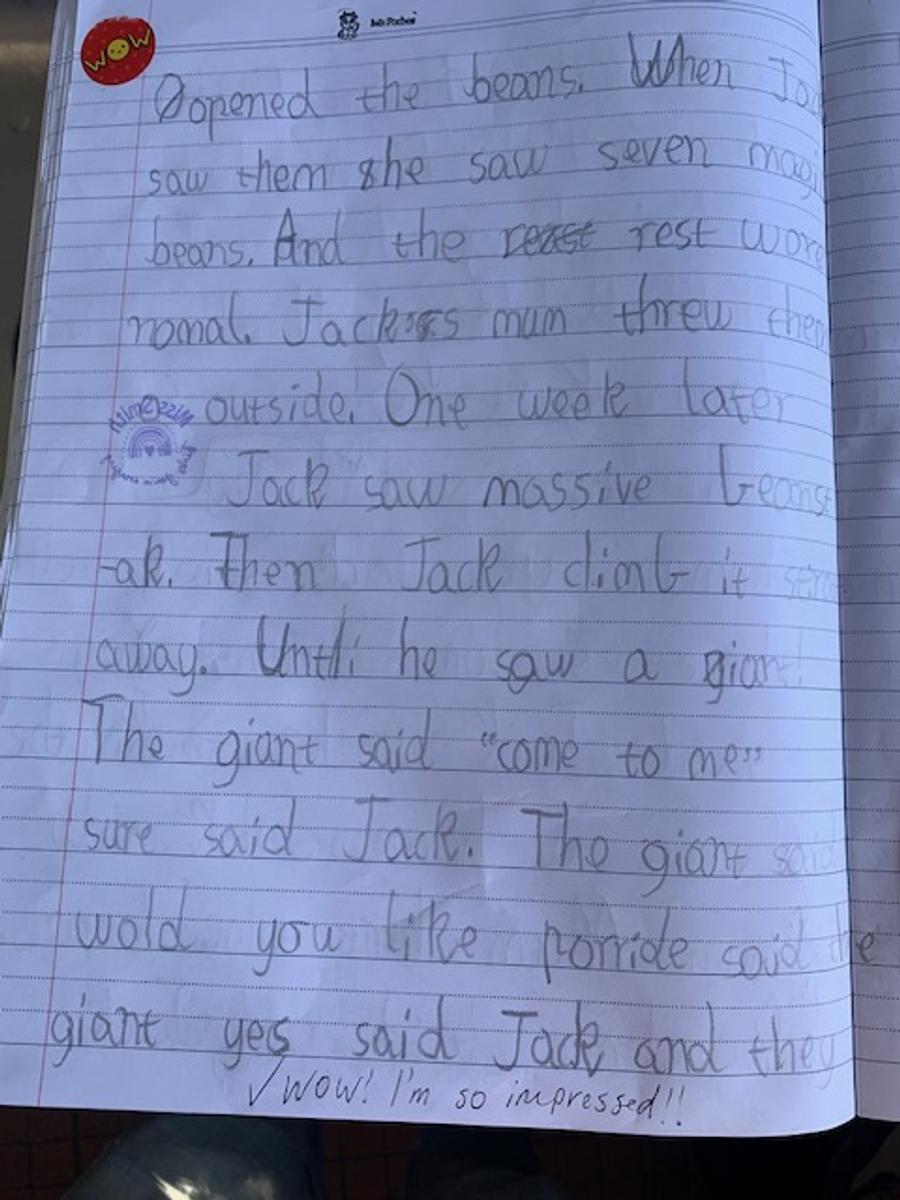 WOW
opened the beans. When
saw them she saw seven
beans. And the rest wore
romal. Jack's mum threw
outside. One week later
Jack saw massive beanst
-ak. Then Jack climb it
away. Untli he saw a giant
The giant said "come to me"
sure said Jack. The giant said
wold you like porride said the
giant yes said Jack and they
✓WOW! I'm so impressed!!